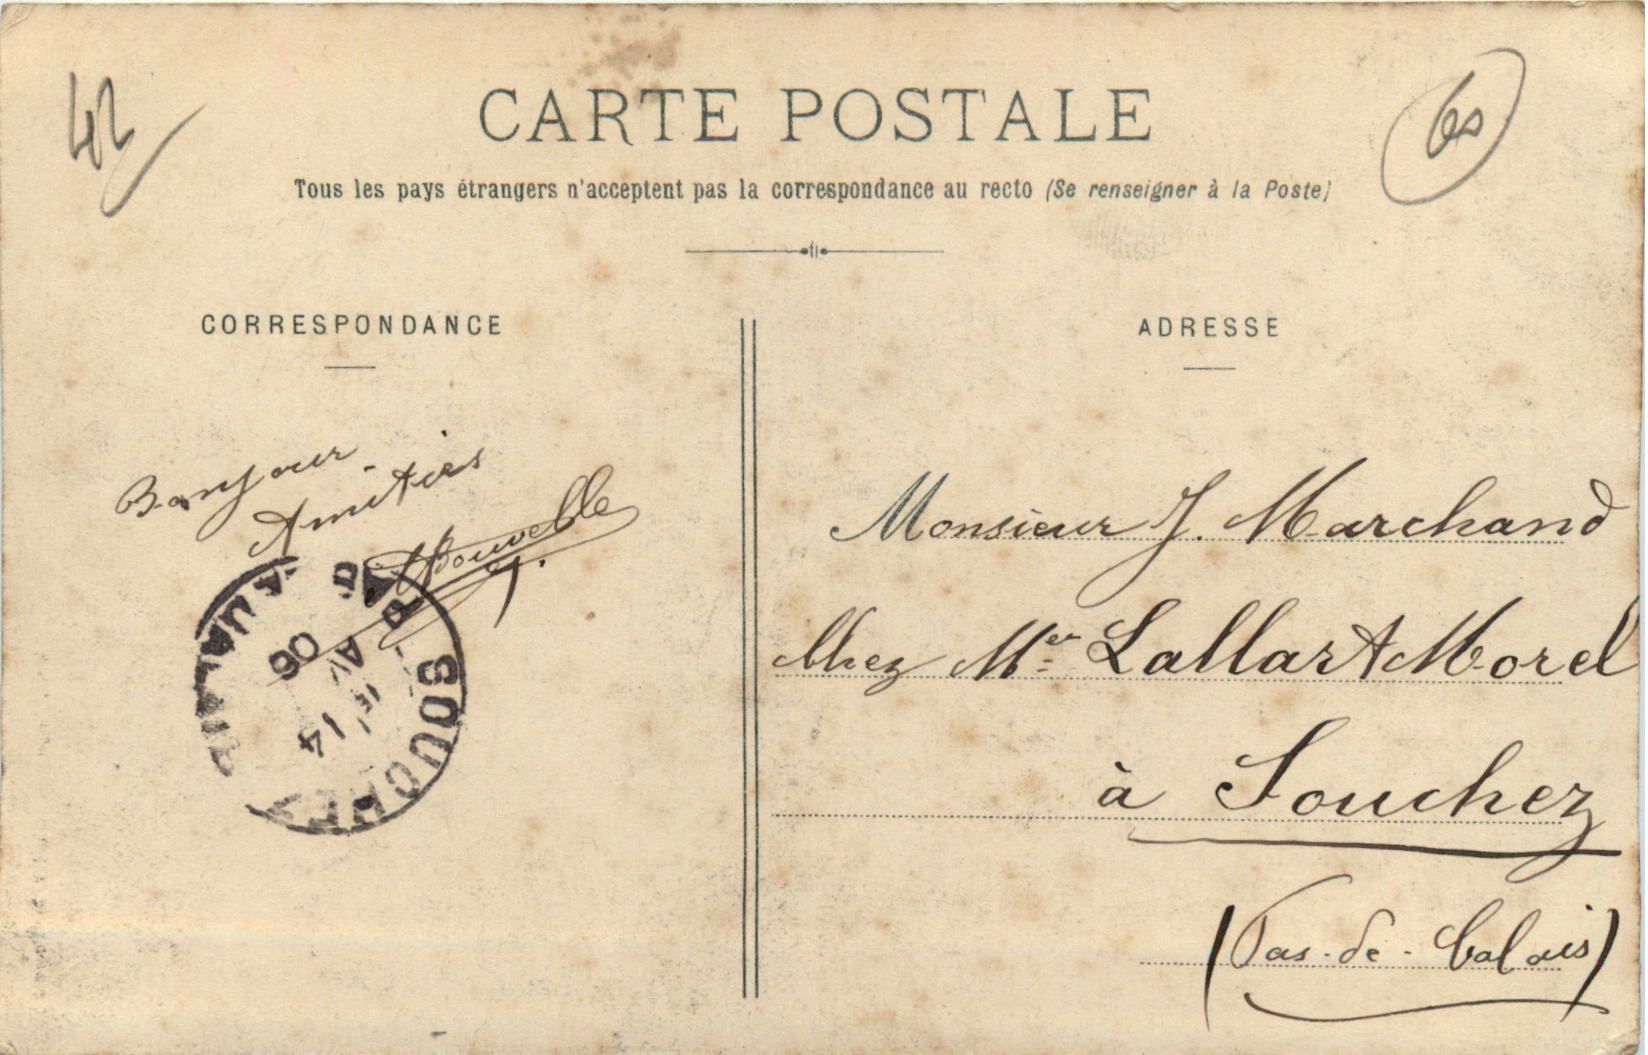 42
60
CARTE POSTALE
Tous les pays étrangers n'acceptent pas la correspondance au recto (Se renseigner à la Poste)
CORRESPONDANCE
Bonjour
Amitiés
SOUCHEZ
14
AV
06
ADRESSE
Monsieur J. Marchand
Chez Mer Lallart Morel
à Souchez
(Pas-de-Calais)